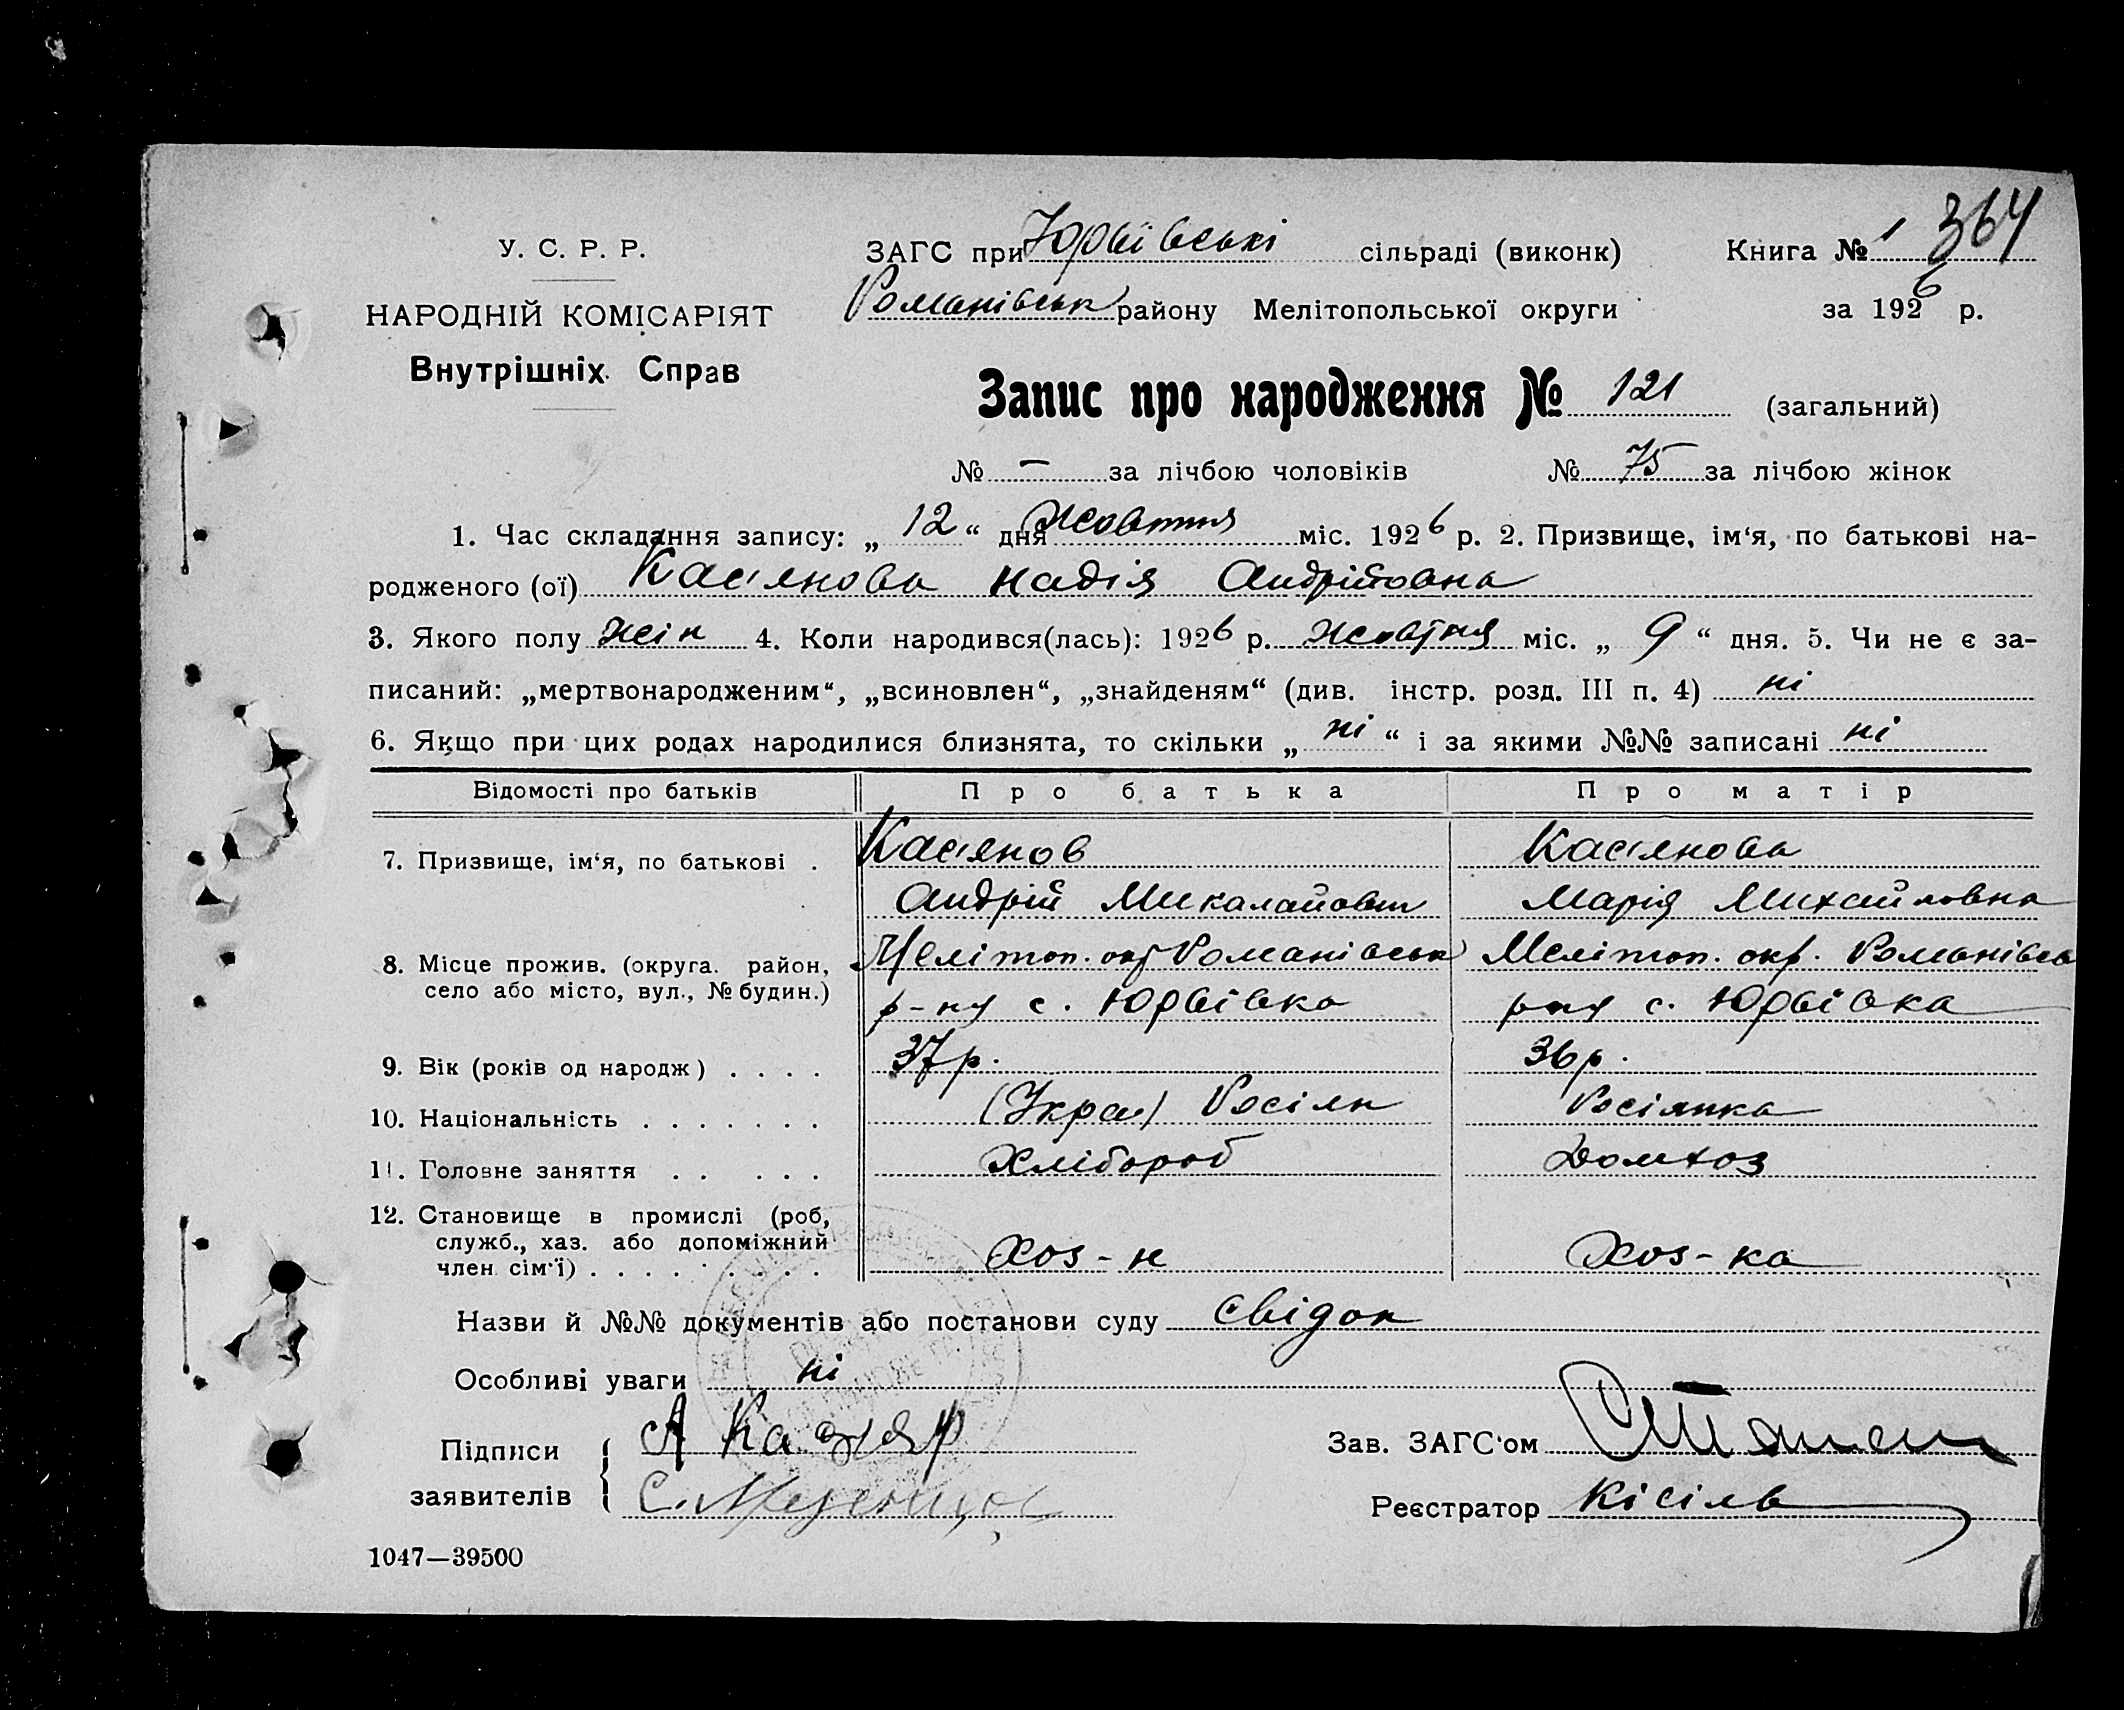 364
У. С. Р. Р.
ЗАГС при Юрвівські сільраді (виконк) Книга № 1
НАРОДНІЙ КОМІСАРІЯТ
Романівськ району Мелітопольської округи за 1926 р.
Внутрішніх Справ
Запис про народження № 121 (загальний)
№ — за лічбою чоловіків № 75 за лічбою жінок
1. Час складання запису: „ 12 “ дня жовтня міс. 1926 р. 2. Призвище, ім‘я, по батькові на-
родженого (ої) Касянова Надія Андрійовна
3. Якого полу жін 4. Коли народився(лась): 1926 р. жовтня міс. „ 9 “ дня. 5. Чи не є за-
писаний: „мертвонародженим“, „всиновлен“, „знайденям“ (див. інстр. розд. III п. 4) ні
6. Якщо при цих родах народилися близнята, то скільки „ ні “ і за якими №№ записані ні
Відомості про батьків Про батька Про матір
7. Призвище, ім‘я, по батькові . Касянов Касянова
Андрій Миколайович Марія Михайловна
8. Місце прожив. (округа. район, Меліт оп. окр Романівськ Меліт оп. окр. Романівсь
село або місто, вул., № будин.) р-ну с. Юрвівка рну с. Юрвівка
9. Вік (років од народж) . . . . 37 р. 36 р.
10. Національність . . . . . . . (Укра) Росіян Росіянка
11. Головне заняття . . . . . Хлібороб Домхоз
12. Становище в промислі (роб,
служб., хаз. або допоміжний Хоз-н Хоз-ка
член сім‘ї) . . . . . . . .
Назви й №№ документів або постанови суду Свідок
Особливі уваги ні
Підписи А Зав. ЗАГС‘ом
заявителів С. Реєстратор Кісіль
1047—39500